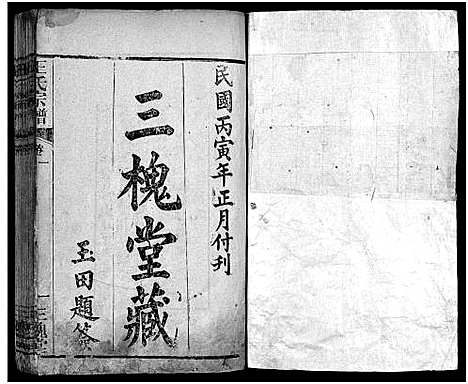 民國丙寅年正月付刊
三槐堂藏
玉田題簽
王氏宗譜
卷一
三槐堂